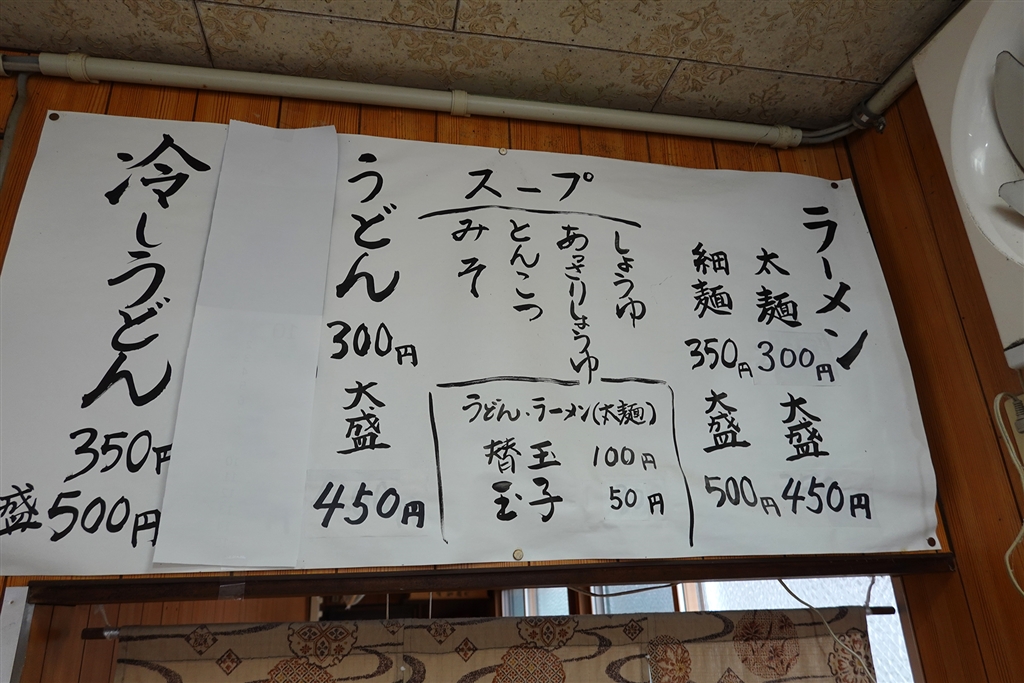 ラーメン
太麺
300円
大盛
450円
細麺
350円
大盛
500円
スープ
しょうゆ
あっさりしょうゆ
とんこつ
みそ
うどん、ラーメン(太麺)
替玉 100円
玉子 50円
うどん
300円
大盛
450円
冷しうどん
350円
盛500円